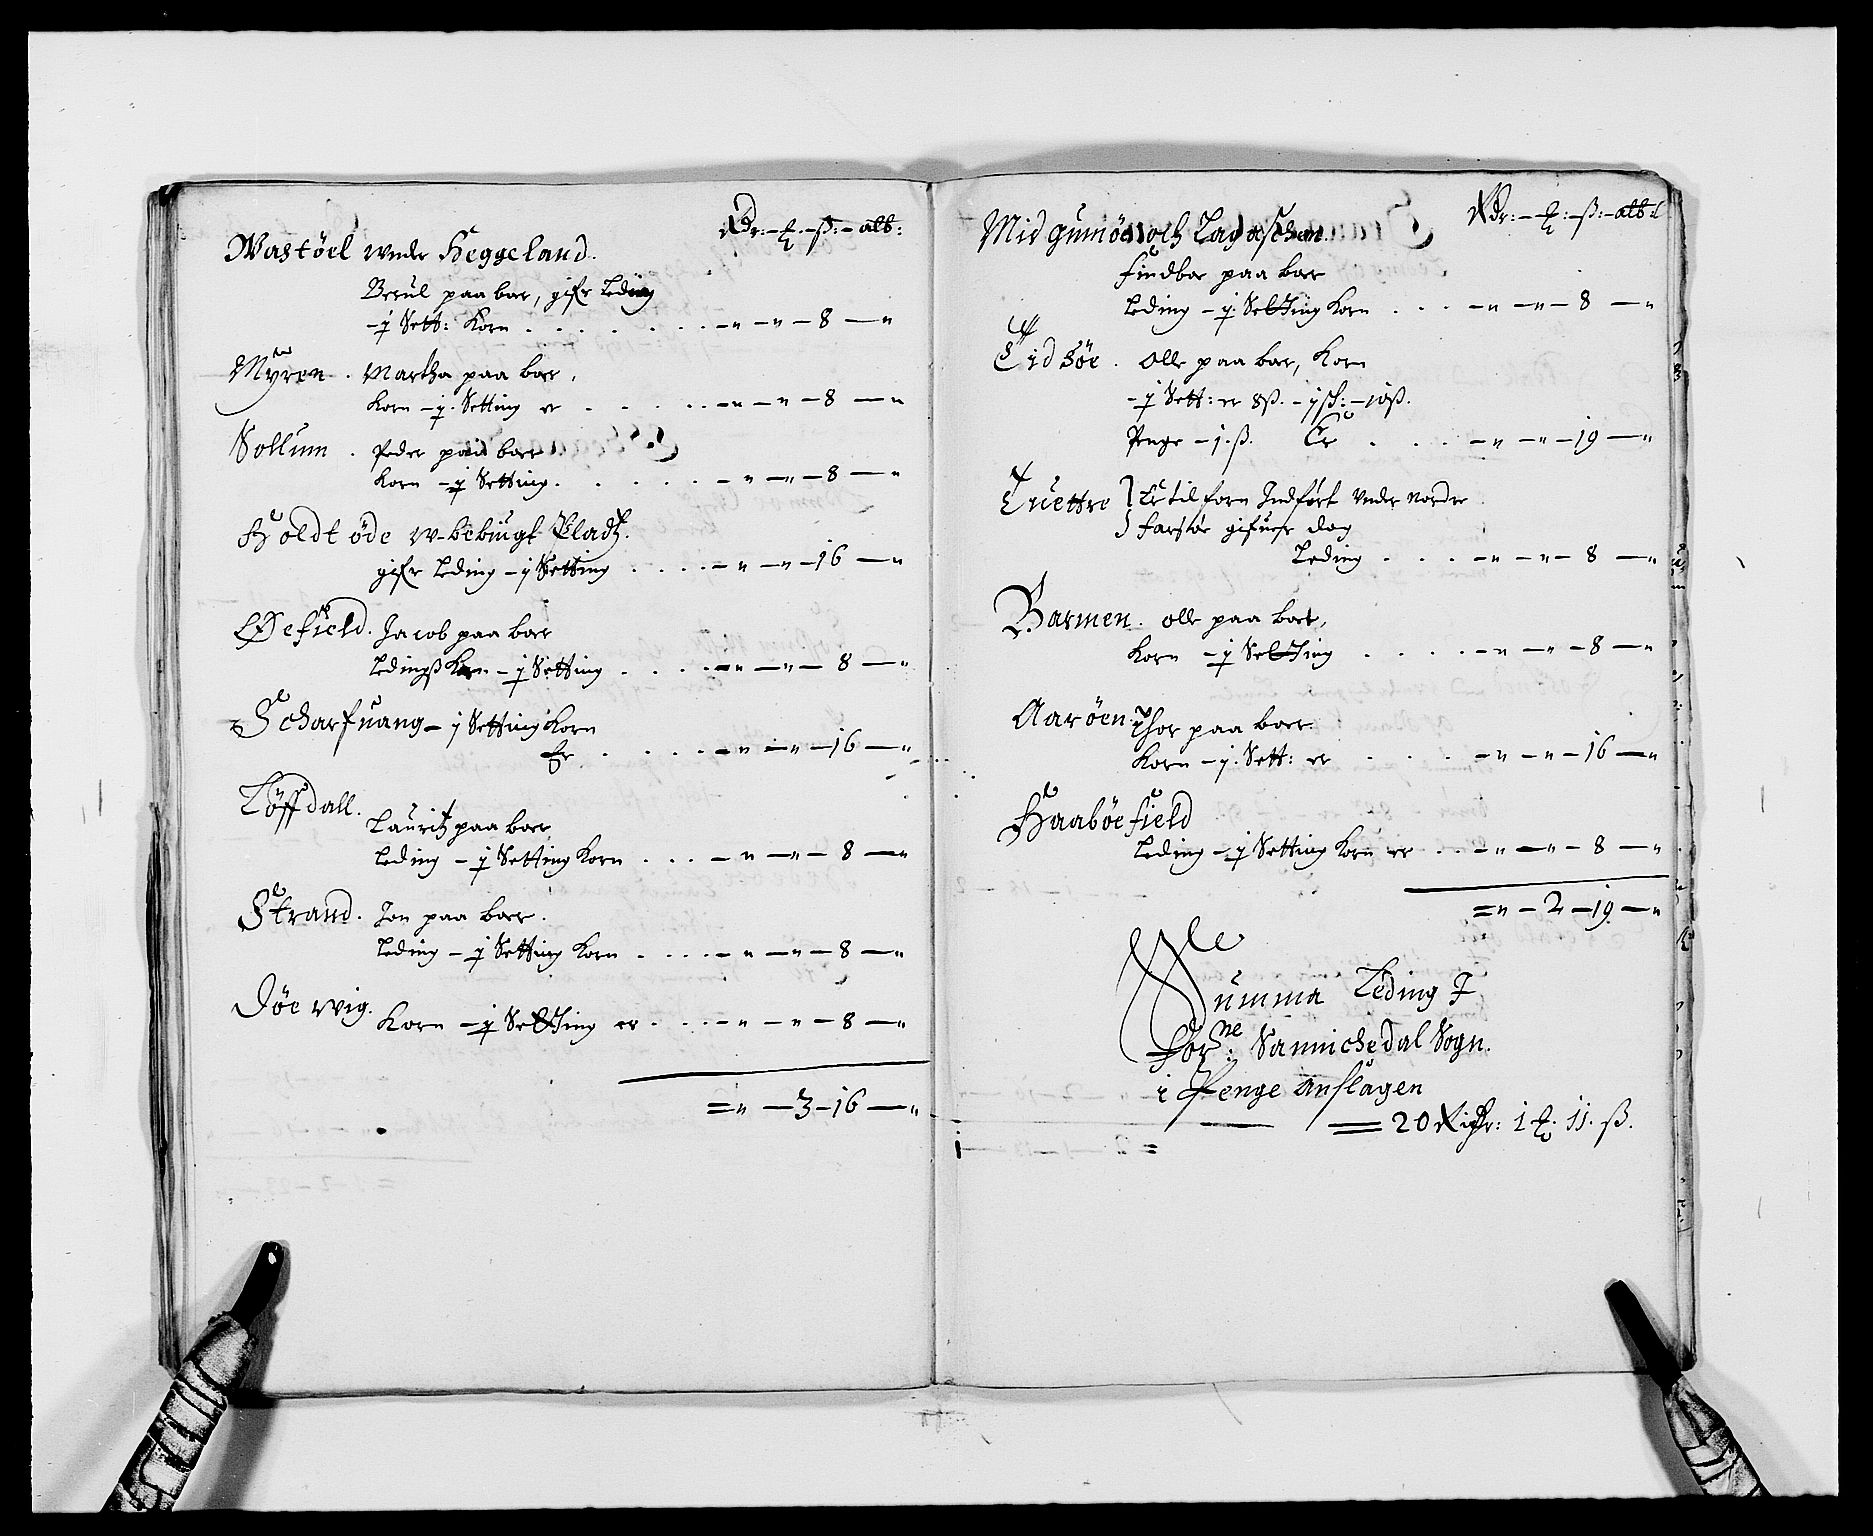 Rdr: – ℔ – ß: – alb:
Wastöel under Heggeland.
Brrul paa boer, gifr Leding
– ½ Sett: Korn . . . . . – „ – „ – 8 – „
Myren . Martha paa boer,
Korn – ½ Setting er . . . . – „ – „ – 8 – „
Sollum . Peder paa boer
Korn – ½ Setting . . . . . – „ – „ – 8 – „
Holdt öde w-bebÿugt Pladtz.
gifr Leding – 1 Setting . . . . – „ – „ – 16 – „
Øefield. Jacob paa boer
Ledingß Korn – ½ Setting . . . . – „ – „ – 8 – „
Scharfuang – 1 Setting Korn
Er . . . . . – „ – „ – 16 – „
Löffdall.
Lauritz paa boer
Leding – ½ Setting Korn . . . – „ – „ – 8 – „
Strand. Jon paa boer.
Leding – ½ Setting Korn . . . . – „ – „ – 8 – „
Döe wig. Korn – ½ Setting er . . . – „ – „ – 8 – „
= „ – 3 – 16 – „
Rdr: – ℔ – ß: – alb:
Midgumöen och
Findboe paa boer
Leding – ½ Setting Korn . . . – „ – „ – 8 – „
Eidsöe . Olle paa boer, Korn
– ½ Sett: er 8ß. – 1 sk: – 10ß.
Penge – 1. ß. Er . . . – „ – „ – 19 – „
Tuettre } Er til forn Indført Under Nordre
} farstøe gifuer dog
Leding . . . . – „ – „ – 8 – „
Barmen. Olle paa boer,
Korn – ½ Setting . . . . – „ – „ – 8 – „
Aaröen. Thor paa boer.
Korn – 1. Sett: er . . . . – „ – „ – 16 – „
Haaböefield
Leding – ½ Setting Korn er . . – „ – „ – 8 – „
= „ – 2 – 19 – „
Summa Leding I
For:ne Sannichedal Sogn.
i Penge anslagen
= 20 Rixdr: 1 ℔ 11. ß.